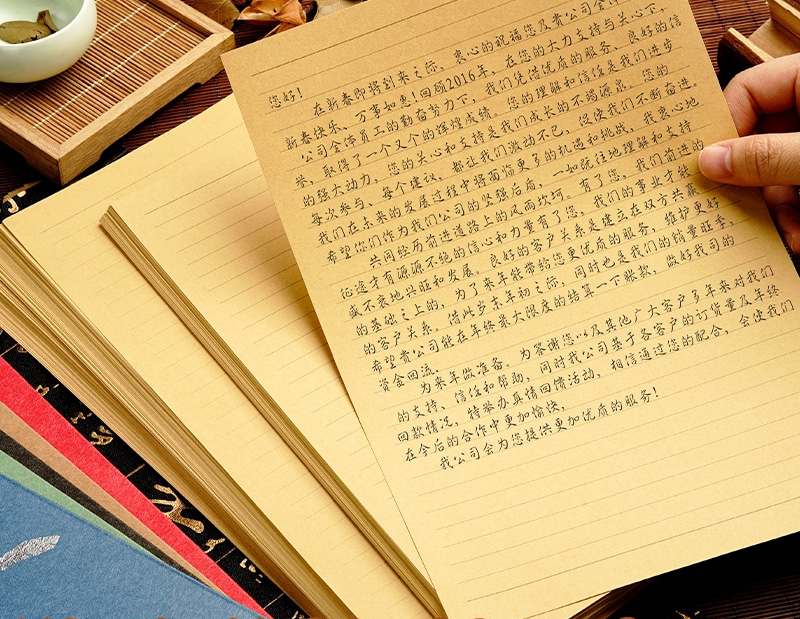 您好!
在新春即将到来之际,衷心的祝福您及贵公司全体
新春快乐、万事如意!回顾2016年,在您的大力支持与关心下,
公司全体员工的勤奋努力下,我们凭借优质的服务、良好的信
誉,取得了一个又个的辉煌成绩。您的理解和信任是我们进步
的强大动力,您的关心和支持是我们成长的不竭源泉。您的
每次参与、每个建议,都让我们激动不已,促使我们不断奋进。
我们在未来的发展过程中将面临更多的机遇和挑战,我衷心地
希望您们作为我们公司的坚强后后,一如既往地理解和支持
共同经历前进道路上的风雨坎坷。有了您,我们前进的
征途才有源源不绝的信心和力量有了您,我们的事业才能
或不衰地兴旺和发展。良好的客户关系是建立在双方共赢
的基础之上的,为了来年能带给您更优质的服务,维护更好
的客户关系。借此岁末年初之际,同时也是我们的销量旺季,
希望贵公司能在年终最大限度的结算一下账款,做好我司的
资金回流,
为来年做准备。为答谢您以及其他广大客户多年来对我们
的支持、信任和帮助,同时我公司基于各客户的订货量及年终
回款情况,特举办真情回馈活动,相信通过您的配合,会使我们
在今后的合作中更加愉快,
我公司会为您提供更加优质的服务!